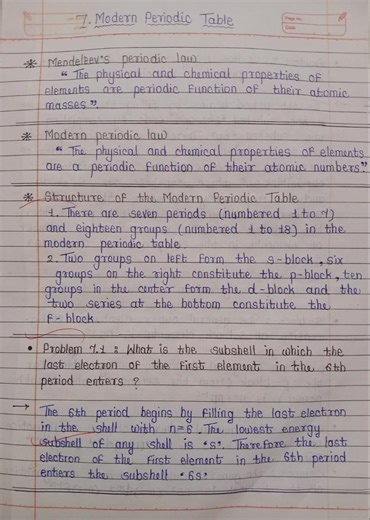 7. Modern Periodic Table
Page No.
Date
* Mendeleev's periodic law
" The physical and chemical properties of
elements are periodic function of their atomic
masses ".
* Modern periodic law
" The physical and chemical properties of elements
are a periodic function of their atomic numbers"
* Structure of the Modern Periodic Table
1. There are seven periods (numbered 1 to 7)
and eighteen groups (numbered 1 to 18) in
the modern periodic table.
2. Two groups on left form the s-block, six
groups on the right constitute the p-block, ten
groups in the center form the d-block and the
two series at the bottom constitute the
f-block.
• Problem 7.1 : What is the subshell in which the
last electron of the first element in the 6th
period enters ?
→ The 6th period begins by filling the last electron
in the shell with n=6. The lowest energy
subshell of any shell is 's'. Therefore the last
electron of the first element in the 6th period
enters the subshell '6s'